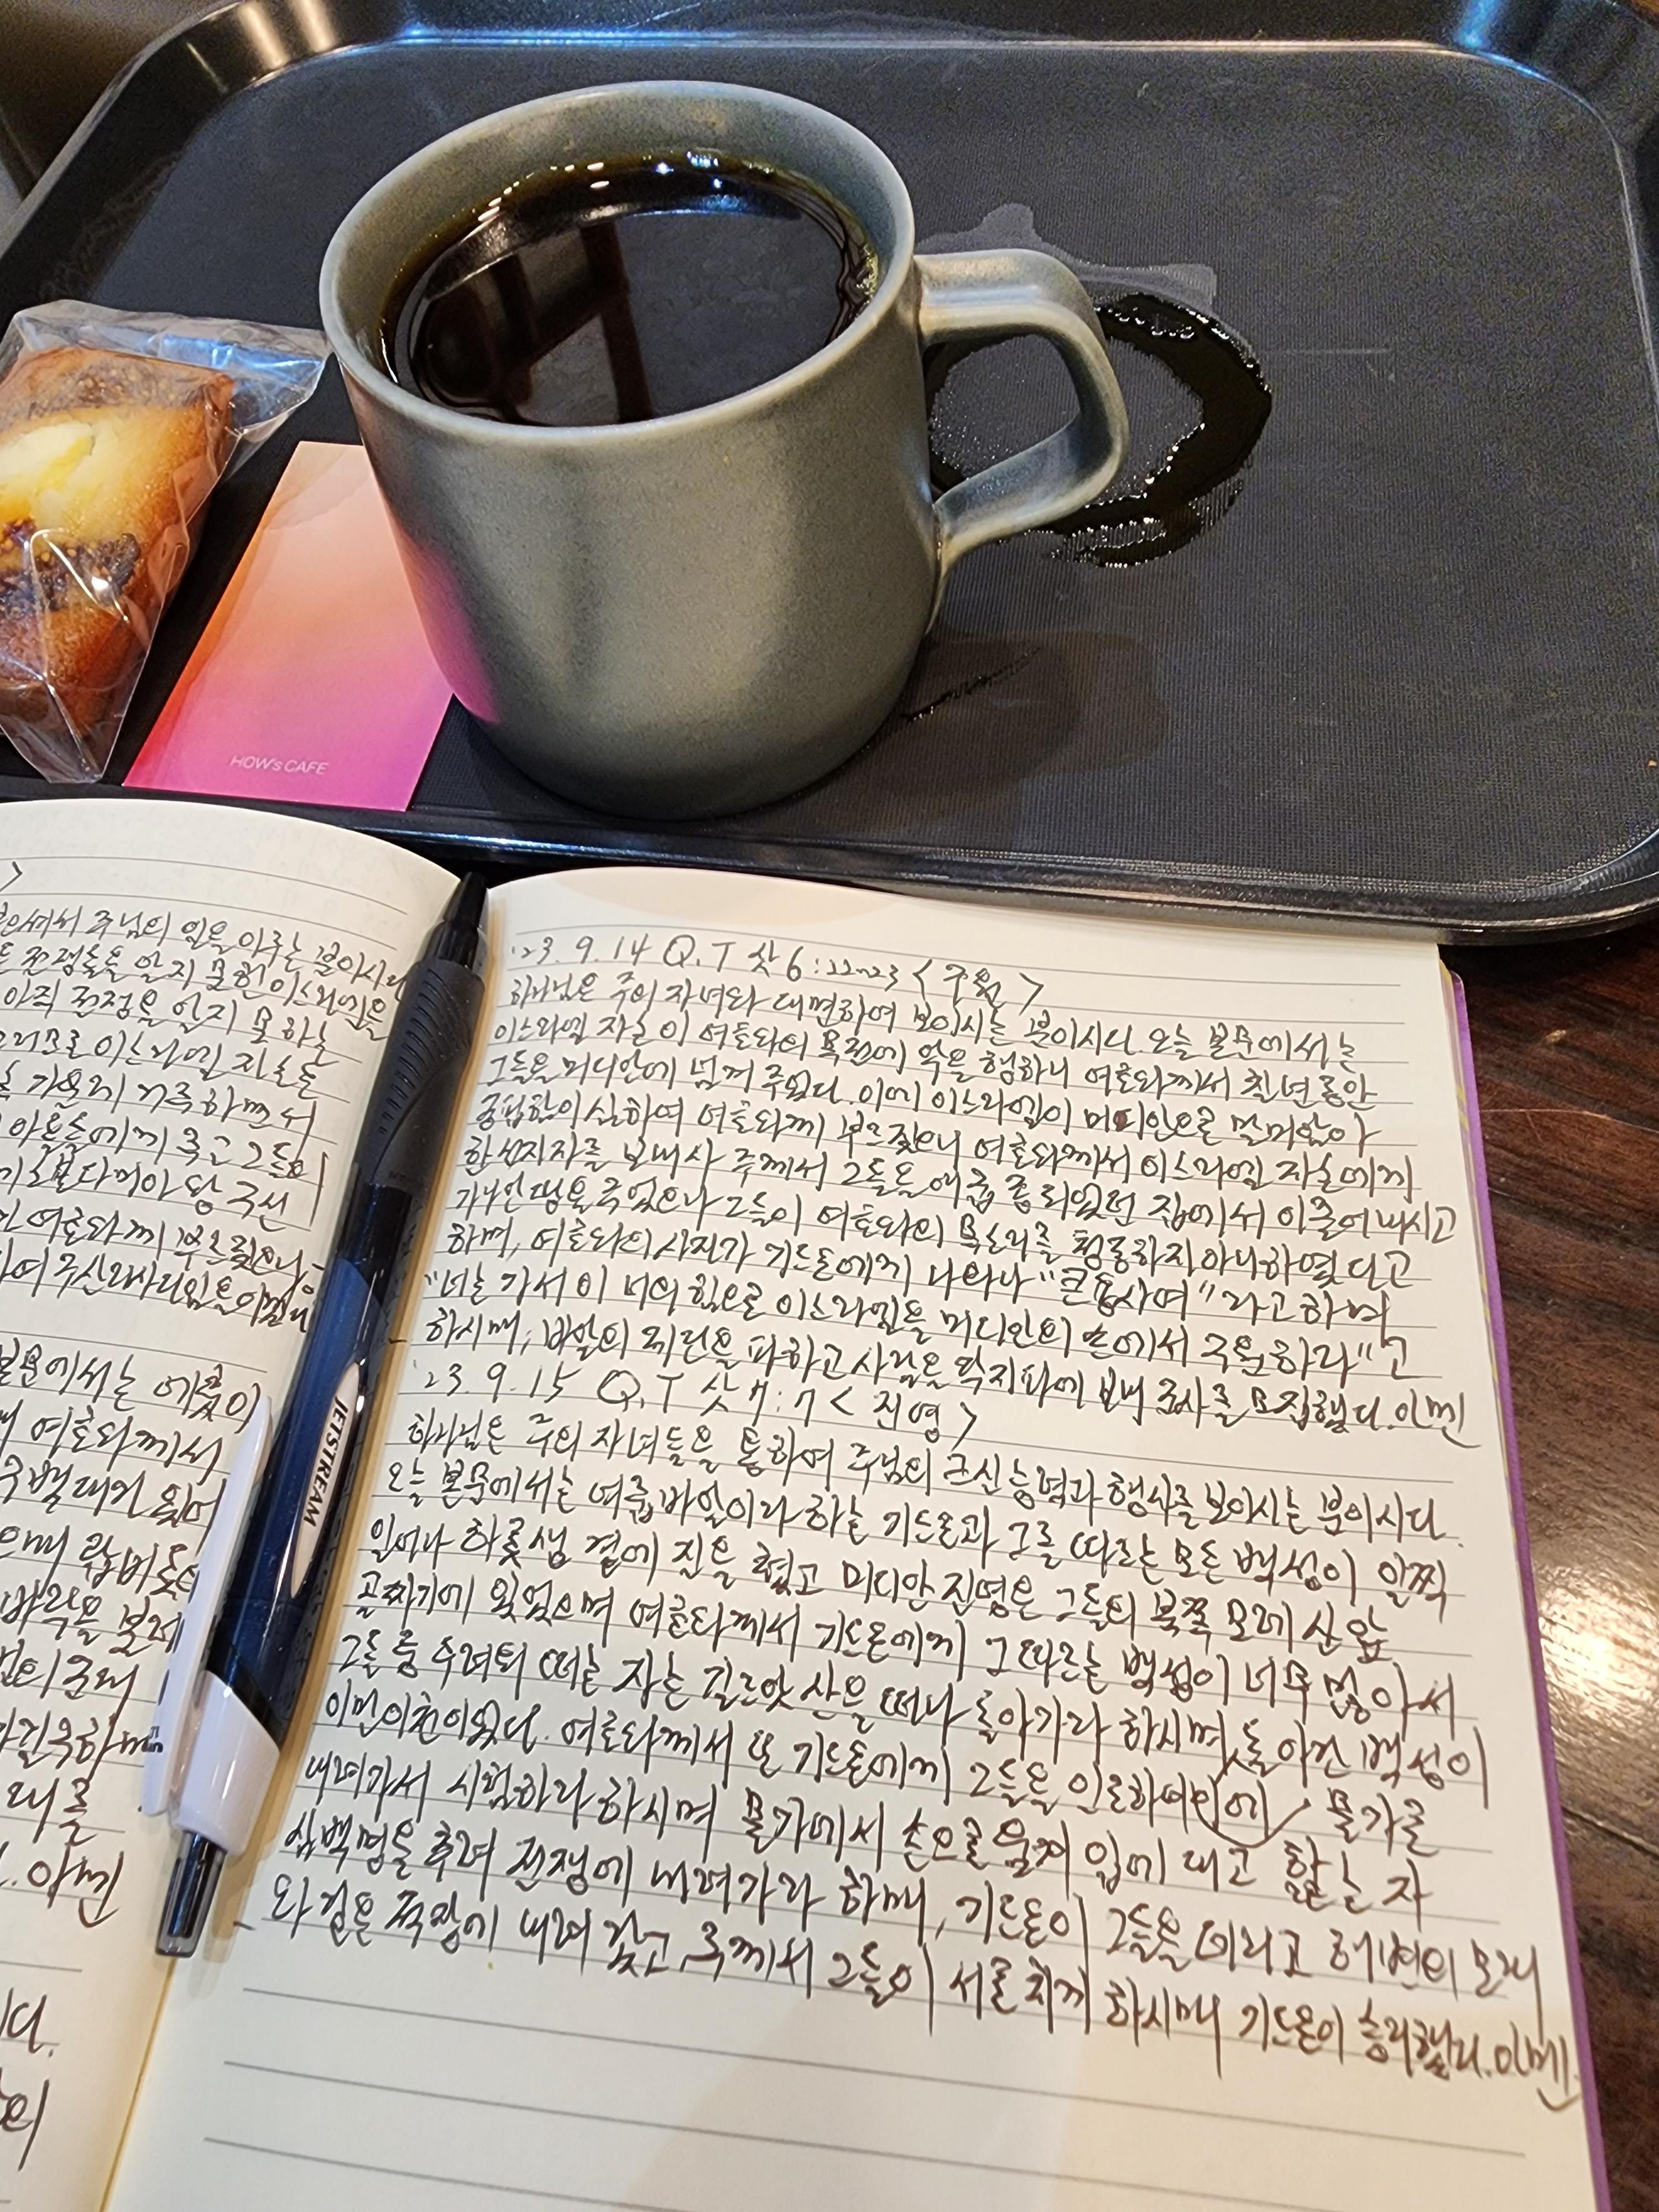 HOW's CAFE
JETSTREAM
주님의 일을 이루는 분이시다
전쟁들을 알지 못한 이스라엘을
아직 전쟁을 알지 못하는
그러므로 이스라엘 자손은
가운데 거주하면서
여호와께 부르짖으니
본문에서는 에훗이
여호와께서
랍비돗의
바락을 불러
아멘
'23. 9. 14 Q.T 삿 6:22~23 <구원>
하나님은 주의 자녀와 대면하여 보이시는 분이시다. 오늘 본문에서는
이스라엘 자손이 여호와의 목전에 악을 행하니 여호와께서 칠 년 동안
그들을 미디안에 넘겨 주었다. 이에 이스라엘이 미디안으로 말미암아
궁핍함이 심하여 여호와께 부르짖으니 여호와께서 이스라엘 자손에게
한 선지자를 보내사 주께서 그들을 애굽 종 되었던 집에서 이끌어 내시고
가나안 땅을 주었으나 그들이 여호와의 목소리를 청종하지 아니하였다고
하며, 여호와의 사자가 기드온에게 나와나 "큰 용사여" 라고 하며
"너는 가서 이 너의 힘으로 이스라엘을 미디안의 손에서 구원하라"고
하시매, 바알의 제단을 파하고 사람을 각지파에 보내 군사를 모집했다. 아멘
'23. 9. 15 Q.T 삿 7:7 <진영>
하나님은 주의 자녀들을 통하여 주님의 크신 능력과 행사를 보이시는 분이시다.
오늘 본문에서는 여룹바알이라 하는 기드온과 그를 따르는 모든 백성이 일찍
일어나 하롯샘 곁에 진을 쳤고 미디안 진영은 그들의 북쪽 모레 산 앞
골짜기에 있었으며 여호와께서 기드온에게 그 따르는 백성이 너무 많아서
그들 중 두려워 떠는 자는 길르앗 산을 떠나 돌아가라 하시며, 돌아간 백성이
이만이천이었다. 여호와께서 또 기드온에게 그들을 인도하여 물가로
내려가서 시험하라 하시며 물가에서 손으로 움켜 입에 대고 핥는 자
삼백명을 추려 전쟁에 내려가라 하매, 기드온이 그들을 데리고 해변의 모래
와 같은 적장에 내려 갔고 주께서 그들이 서로 치게 하시매 기드온이 승리했다. 아멘.